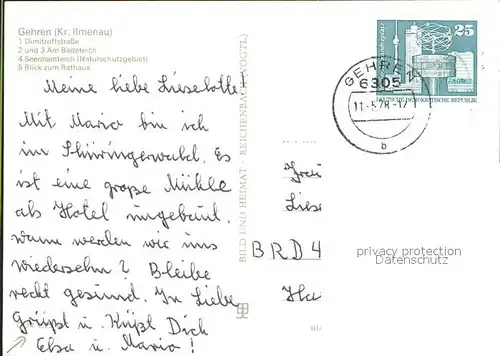 Gehren (Kr. Ilmenau)
1 Dimitroffstraße
2 und 3 Am Badeteich
4 Seerosenteich (Naturschutzgebiet)
5 Blick zum Rathaus
Meine liebe Lieselotte!
Mit Mario bin ich
im Thüringerwald. Es
ist eine große Mühle
als Hotel umgebaut.
wann werden wir uns
wiedersehn? Bleibe
recht gesund. In Liebe
Grüßt u. Küßt Dich
Elsa u. Mario!
BILD UND HEIMAT · REICHENBACH (VOGTL)
25
DEUTSCHE DEMOKRATISCHE REPUBLIK
GEHREN
6305
11.-5.78-17
b
Frau
Liese
BRD 4
Ha
privacy protection
Datenschutz